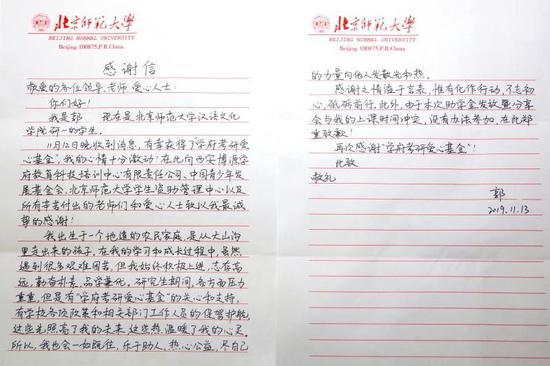 北京师范大学
BEIJING NORMAL UNIVERSITY
Beijing 100875,P.R.China
感谢信
敬爱的各位领导、老师、爱心人士:
你们好!
我是郭 现在是北京师范大学汉语文化
学院研一的学生。
11月12日晚收到消息,有幸获得了"学府考研爱
心基金",我的心情十分激动!在此向西安博源学
府教育科技培训中心有限责任公司、中国青少年发
展基金会、北京师范大学学生资助管理中心以及
所有幸苦付出的老师们和爱心人士致以我最诚
挚的感谢!
我出生于一个地道的农民家庭,是从大山沟
里走出来的孩子,在我的学习和成长过程中,虽然
遇到很多艰难困苦,但我始终积极上进,志存高
远,勤奋朴素,品学兼优。研究生期间,各方面压力
重重,但是有"学府考研爱心基金"的关心和支持,
有学校各项政策和相关部门工作人员的保驾护航,
这些光照亮了我的未来,这些热温暖了我的心灵。
所以,我也会一如既往,乐于助人,热心公益,尽自己
北京师范大学
BEIJING NORMAL UNIVERSITY
Beijing 100875,P.R.China
的力量向他人发散光和热。
感谢之情溢于言表,惟有化作行动,不忘初
心,砥砺前行。此外,由于本次助学金发放暨分享
会与我的上课时间冲突,没有办法参加,在此郑
重致歉!
再次感谢"学府考研爱心基金"!
此致
敬礼
郭
2019.11.13